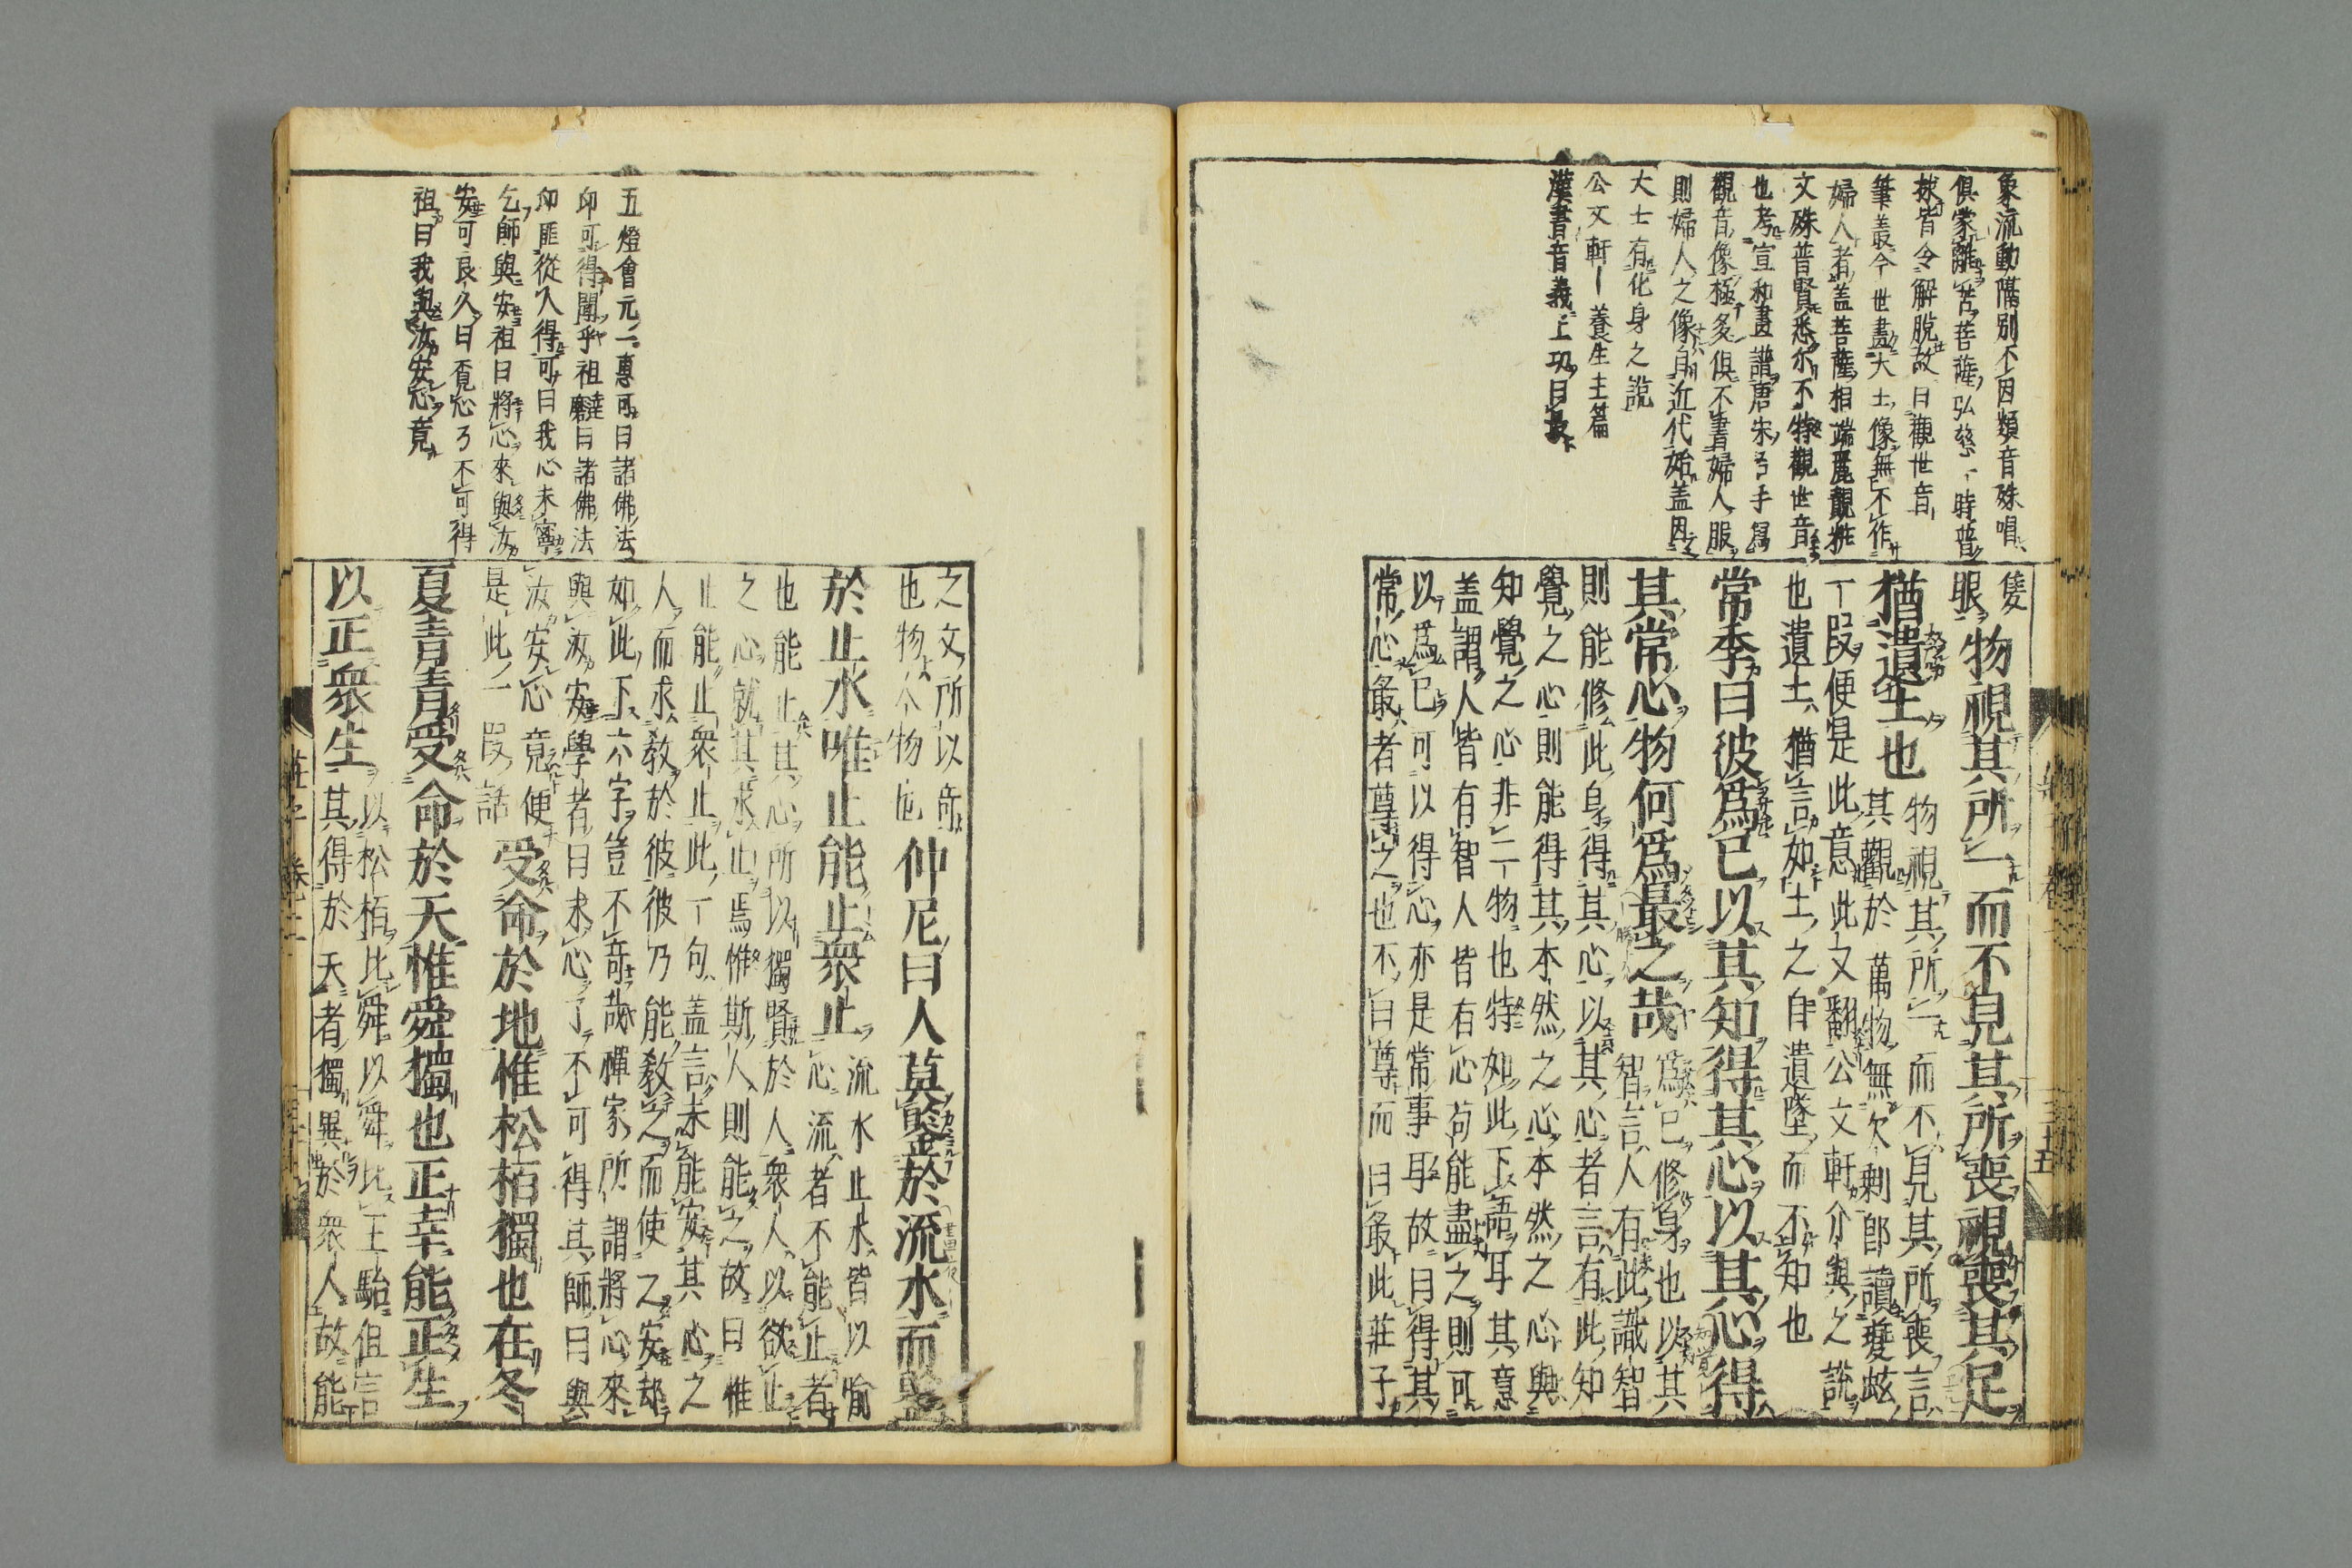 象流動隔別不因類音殊唱
俱蒙離苦菩薩弘慈一時普
救皆令解脫故曰觀世音
筆叢今世畫大士像無不作
婦人者蓋菩薩相端麗觀
文殊普賢悉尓不特觀世音
也考宣和畫譜唐宋名手寫
觀音像極多俱不書婦人服
則婦人之像自近代始蓋因
大士有化身之說
公文軒｜養生主篇
漢書音義上功曰最
隻
眼物視其所一而不見其所喪視喪其足
猶遺土也物視其所一而不見其所喪言
其觀於萬物無欠剩郎讀變蚿
一段便是此意此又翻公文軒介與之說
也遺土猶言如土之自遺墜而不知也
常季曰彼爲己以其知得其心以其心得
其常心物何爲最之哉爲己修身也以其
智言人有此識智
則能修此身得其心以其心者言有此知
覺之心則能得其本然之心本然之心與
知覺之心非二物也特如此下語耳其意
蓋謂人皆有智人皆有心苟能盡之則可
以爲己可以得心亦是常事耳故曰得其
常心最者尊之也不曰尊而曰最此莊子
五燈會元一惠可曰諸佛法
印可得聞乎祖達磨曰諸佛法
印匪從人得可曰我心未寧
乞師與安祖曰將心來與汝
安可良久曰覓心了不可得
祖曰我與汝安心竟
之文所以奇
也物
仲尼曰人莫鑒於流水而鑒
於止水唯止能止衆止流水止水皆以喻
心流者不能止者
也能止其心所以獨賢於人衆人以欲止
之心就其求止焉惟斯人則能之故曰惟
止能止衆止此一句蓋言未能安其心之
人而求教於彼彼乃能教之而使之安却
如此下六字豈不奇哉禪家所謂將心來
與汝安學者曰求心了不可得其師曰與
汝安心竟便
是此一段話受命於地惟松栢獨也在冬
夏青青受命於天惟舜獨也正幸能正生
以正衆生以松栢比舜以舜比王駘但言
其得於天者獨異於衆人故能
莊子 卷二